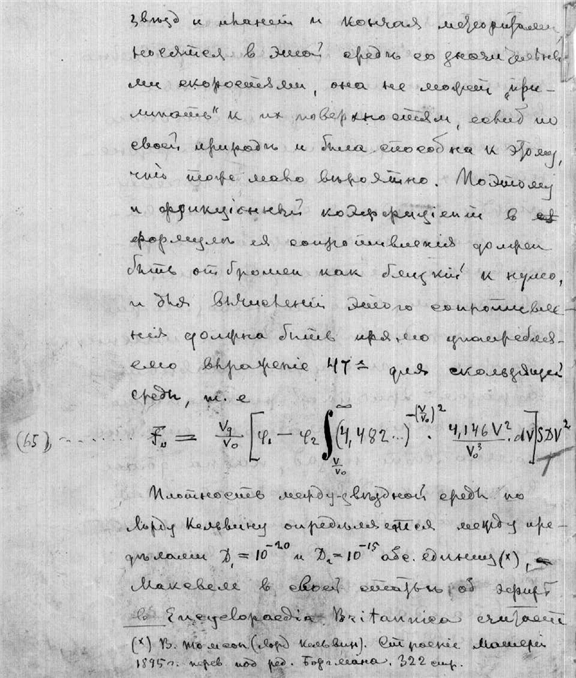 звѣзд и планет и кончая метеоритами
носятся в этой средѣ со значительны-
ми скоростями, она не может „при-
липать" к их поверхностям, если б по
своей природѣ и была способна к этому,
что тоже мало вѣроятно. Поэтому
и фрикціонный коэффиціент в
формулѣ ея сопротивленія должен
быть отброшен как близкій к нулю,
и для вычисленій этого сопротивле-
нія должна быть прямо употребляе-
емо выраженіе 47 для скользящей
среды, т. е
(65)........ F₀ = V₉/V₀ [φ₁ − φ₂ ∫ (4,482...)^−(V/V₀)² · 4,146 V²/V₀³ · dV] SDV²
Плотность междузвѣздной среды по
Лорду Кельвину опредѣляется между пре-
дѣлами D₁ = 10⁻²⁰ и D₂ = 10⁻¹⁵ абс. единиц (x),
Максвель в своей статьѣ об эфирѣ
в Encyclopaedia Britannica считает
(x) В. Томсон (Лорд Кельвин). Строеніе Матеріи
1895 г. перев под ред. Боргмана. 322 стр.